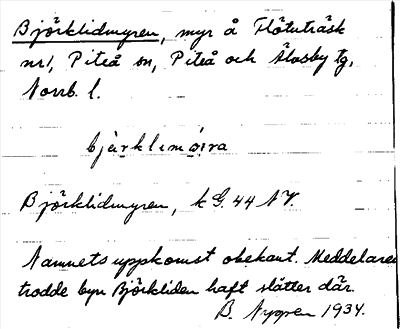 Björklidmyren, myr å Flötuträsk
nr 1, Piteå sn, Piteå och Älvsby tg,
Norrb. l.
bjärklimóira
Björklidmyren, k G. 44 NV.
Namnets uppkomst obekant. Meddelaren
trodde byn Björkliden haft slåtter där.
B. Nygren 1934.